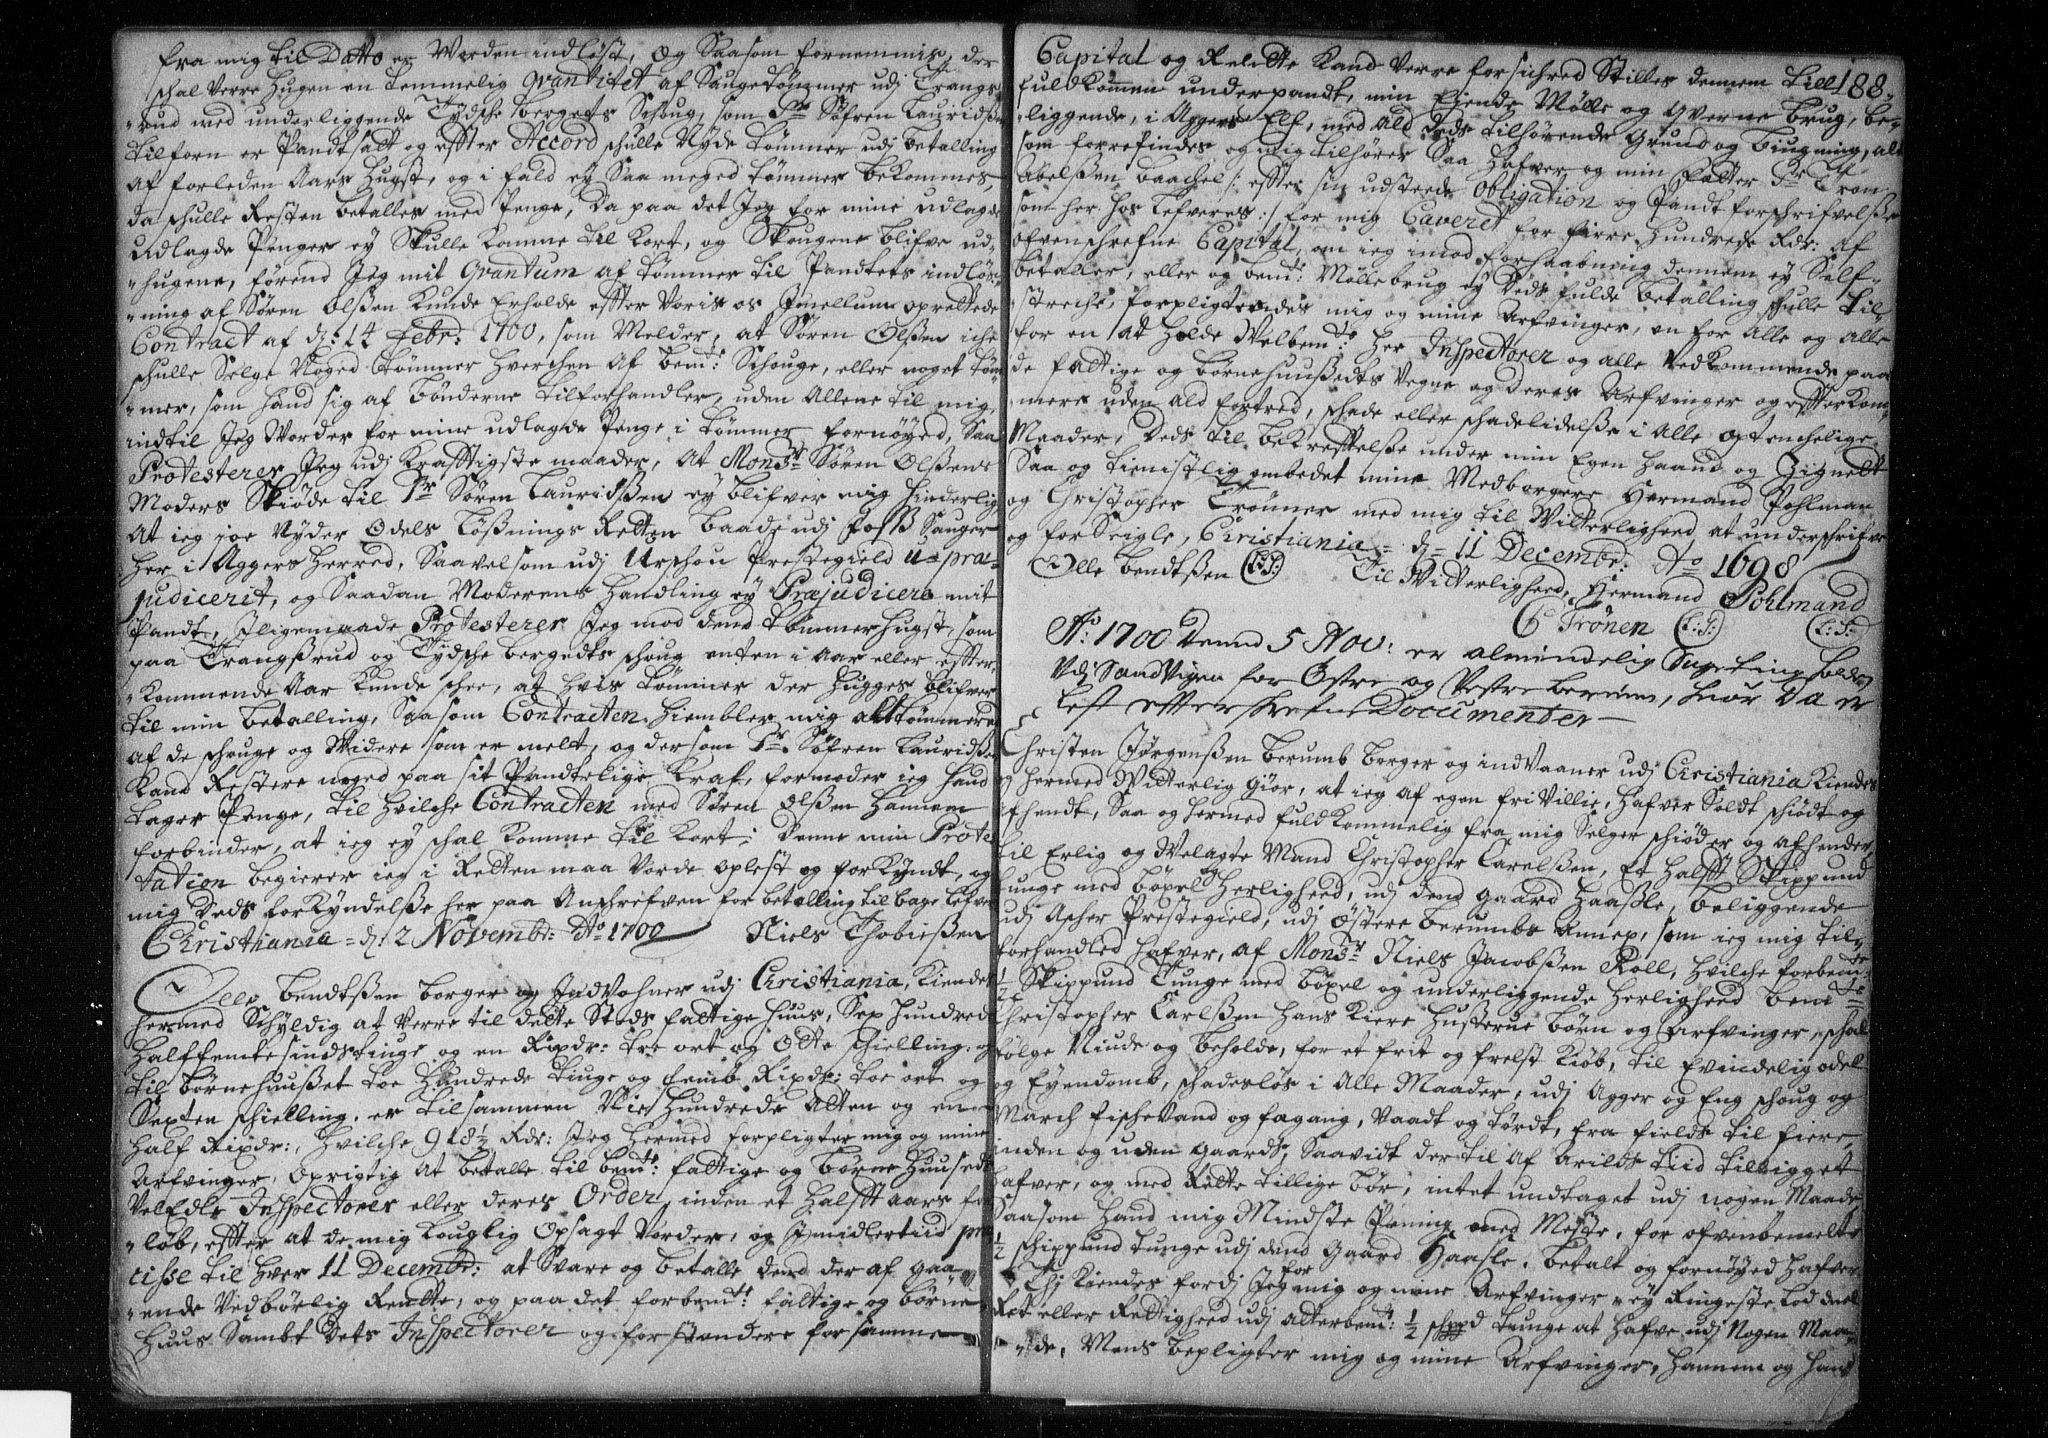 fra mig til Datto er Worden indløst, og Saasom fornemmis, der
schal verre hugen en temmelig qvantitet af Saugetømmer udj Trangs
"rud med underliggende Tydsche bergets Schoug, som Sr Søfren Lauridsen
tilforn er Pandtsatt og effter Accord schulle Nyde tømmer udj betalling
af forleden Aars hugst, og i fald ey Saa meged tømmer bekommes,
da schulle Resten betalles med Penge, Da paa det Jeg for mine udlagde
udlagde Penger ey Skulle komme til kort, og Skougene blifve ud-
"hugene, førend Jeg mit qvantum af tømmer til Pandtets indløs-
"ning af Søren Olsen kunde Erholde effter voris os Imellum oprettede
Contract af d: 14 Febr: 1700, som Melder, at Søren Olsen iche
schulle Selge Noged tømmer hverchen af bemt: Schouge, eller noget tøm-
"mer, som hand sig af bønderne tilforhandler, uden Allene til mig,
indtil Jeg Worder for mine udlagde Penge i tømmer fornøyed, Saa
Protesterer Jeg udj kraftigste maader, at Monsr Søren Olsens
Moders Skiøde til Sr Søren Lauridsen ey blifver mig hinderlig
At ieg joe Nyder Odels Løsnings Retten baade udj Foss Sauger
her i Aggers herred, Saavelsom udj Urschou Prestegield u-præ-
judicerit, og Saadan Moderens handling ey Præjudicere mit
Pandt, Iligemaade Protesterer Jeg mod dend tømmerhugst, som
paa Trangsrud og Tydsche bergedts schoug enten i Aar eller effter-
"kommende Aar kunde schee, at hvis tømmer der hugges blifver
til min betalling, Saasom Contracten hiembler mig alt tømmered
af de schouge og widere som er melt, og dersom Sr. Søfren Lauridsen
kand Restere noged paa sit Pandtelige kraf, formoder ieg hand
tager Penge, til hvilche Contracten med Søren Olsen hannem
forbinder, at ieg ey schal komme til kort: Denne min Protes
tation begierer ieg i Retten maa vorde oplest og forkyndt, og
mig deds forkyndelse her paa Anschrefven for betalling tilbage lefver
Christiania d: 2 Novembr: Ao 1700 Niels Thobiesen
Olle bendtsen borger og Indvohner udj Christiania, Kiender
hermed Schyldig at verre til dette Steds fattige huus, Sex hundred
halffemtesindstiuge og en Rixdr: tre ort og Otte schielling, og
til børnehuuset toe hundrede tiuge og femb Rixdr: toe ort og
Sexten schielling, er tilsammen Nie hundrede Atten og en
half Rixdr:, hvilche 918½ Rdr: Jeg hermed forpligter mig og mine
Arfvinger, oprigtig at betalle til bemt: fattige og børne huuseds
Veledle Inspectorer eller deres Order, inden et halft aars for
"løb, effter at de mig louglig opsagt vorder, og Imidlertiid præ
cisse til hver 11 Decembr: at Svare og betalle dend der af gaa-
"ende Vedbørlig Rendte, og paa det forbemt: fattige og børne
huus Sambt dets Inspectorer og forstandere for samme
188.
Capital og Rendte kand verre forsichred Stilles dennem till
fuldkommen underpandt, min Ejende Mølle og qverne brug, be-
"liggende, i Aggers Elf, med ald deds tilhørende Grund og biugning, alt
som forrefindes og mig tilhører Saa hafver og min Fatter Sr Tron
Abelsen baachel /: effter sin udsteede obligation og Pandtforschrifvelse
som her hos lefveres :/ for mig Caverit for firre hundrede Rdr: af
ofvenschrefne Capital, om ieg imod forhaabning dennem ey Self
betaller, eller og bemt: Møllebrug ey deds fulde betalling schulle til-
"streche, forpligtendes mig og mine Arfvinger, en for Alle og alle
for en at holde Welbemte her Inspectorer og alle Vedkommende paa
de fattige og børnehuusedts Vegne og deres Arfvinger og effterkom-
mere uden ald fortred, schade eller schadelidelse i Alle optenchelige
Maader, deds til bekrefftelse under min Egen haand og Zignett
Saa og tienistlig ombedet mine Medborgere Hermand Pohlman
og Christopher Trønner med mig til Witterlighed at underschrifve
og forSeigle, Christiania d- 11 Decembr: Ao 1698
Olle bendtsen (L:S:) Til Witterlighed, Hermand Pohlmand
C Trønen (L:S:) (L:S:)
Ao: 1700 dend 5 Nov: er almindelig Sageting holden
udj Sandvigen for Østre og Vestre berum, hvor da er
lest efftterschrefne Documenter
Christen Jørgensen berumb borger og indvaaner udj Christiania Kiendes
og hermed Witterlig giør, at ieg af egen fri Villie, hafver Soldt schiødt og
afhendt, Saa og hermed fuldkommelig fra mig Selger schiøder og afhender
til Erlig og Welagte Mand Christopher Carelsen, Et halft Skippund
tunge med bøxel og herlighed, udj dend gaard Haasle, beliggende
udj Ascher Prestegield, udj Østere berumbs Annex, som ieg mig til-
forhandled hafver, af Monsr Niels Jacobsen Roll, hvilche forbemte
½ Skippund Tunge med bøxel og underliggende herlighed bemte
Christopher Carlsen hans kiere husterue børn og Arfvinger, schal
følge Niude og beholde, for et frit og frelst kiøb, til Evindelig odel
og Eyendomb, schadesløs i Alle Maader, udj Agger og Eng schoug og
March fischevand og fagang, vaadt og tørdt, fra fields til fiere
inden og uden gaards, Saavidt der til af Arilds tiid tilligget
hafver, og med Rette tillige bør, intet undtaget udj nogen Maade
Saasom hand mig Mindste Pening med Meste, for ofvenbemelte
½ schippund tunge udj dend gaard Haasle, betalt og fornøyed hafver
Thj kiender fordj Jeg for mig og mine Arfvinger ey Ringeste Lod deel
Ret eller Rettighed udj alterbemt: ½ schpd tunge at hafve udj Nogen Maa-
"de, Mens bepligter mig og mine Arfvinger, hannem og hans